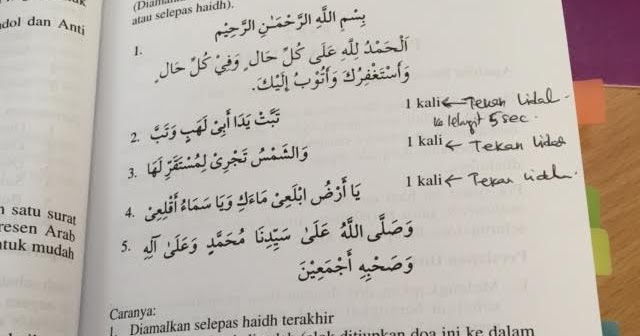 dol dan Anti
n satu surat
resen Arab
ntuk mudah
(Diamalkan
atau selepas haidh).
1. بِسْمِ اللَّهِ الرَّحْمَٰنِ الرَّحِيْمِ
اَلْحَمْدُ لِلَّهِ عَلَى كُلِّ حَالٍ وَفِيْ كُلِّ حَالٍ
وَأَسْتَغْفِرُكَ وَأَتُوْبُ إِلَيْكَ.
2. تَبَّتْ يَدَا أَبِيْ لَهَبٍ وَتَبَّ 1 kali ← Tekan lidah
ke lelangit 5 sec.
3. وَالشَّمْسُ تَجْرِيْ لِمُسْتَقَرٍّ لَهَا 1 kali ← Tekan lidah
4. يَا أَرْضُ ابْلَعِيْ مَاءَكِ وَيَا سَمَاءُ أَقْلِعِيْ 1 kali ← Tekan lidah
5. وَصَلَّى اللَّهُ عَلَى سَيِّدِنَا مُحَمَّدٍ وَعَلَى آلِهِ
وَصَحْبِهِ أَجْمَعِيْنَ
Caranya:
1. Diamalkan selepas haidh terakhir
ditiupkan doa ini ke dalam